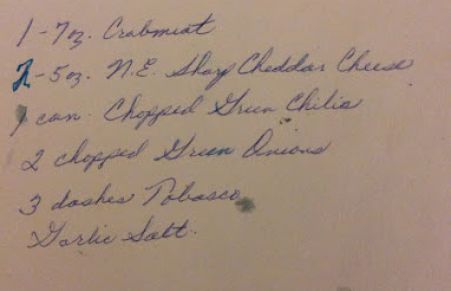 1-7oz. Crabmeat
2-5oz. N.E. Sharp Cheddar Cheese
1 can Chopped Green Chilis
2 chopped Green Onions
3 dashes Tobasco
Garlic Salt.